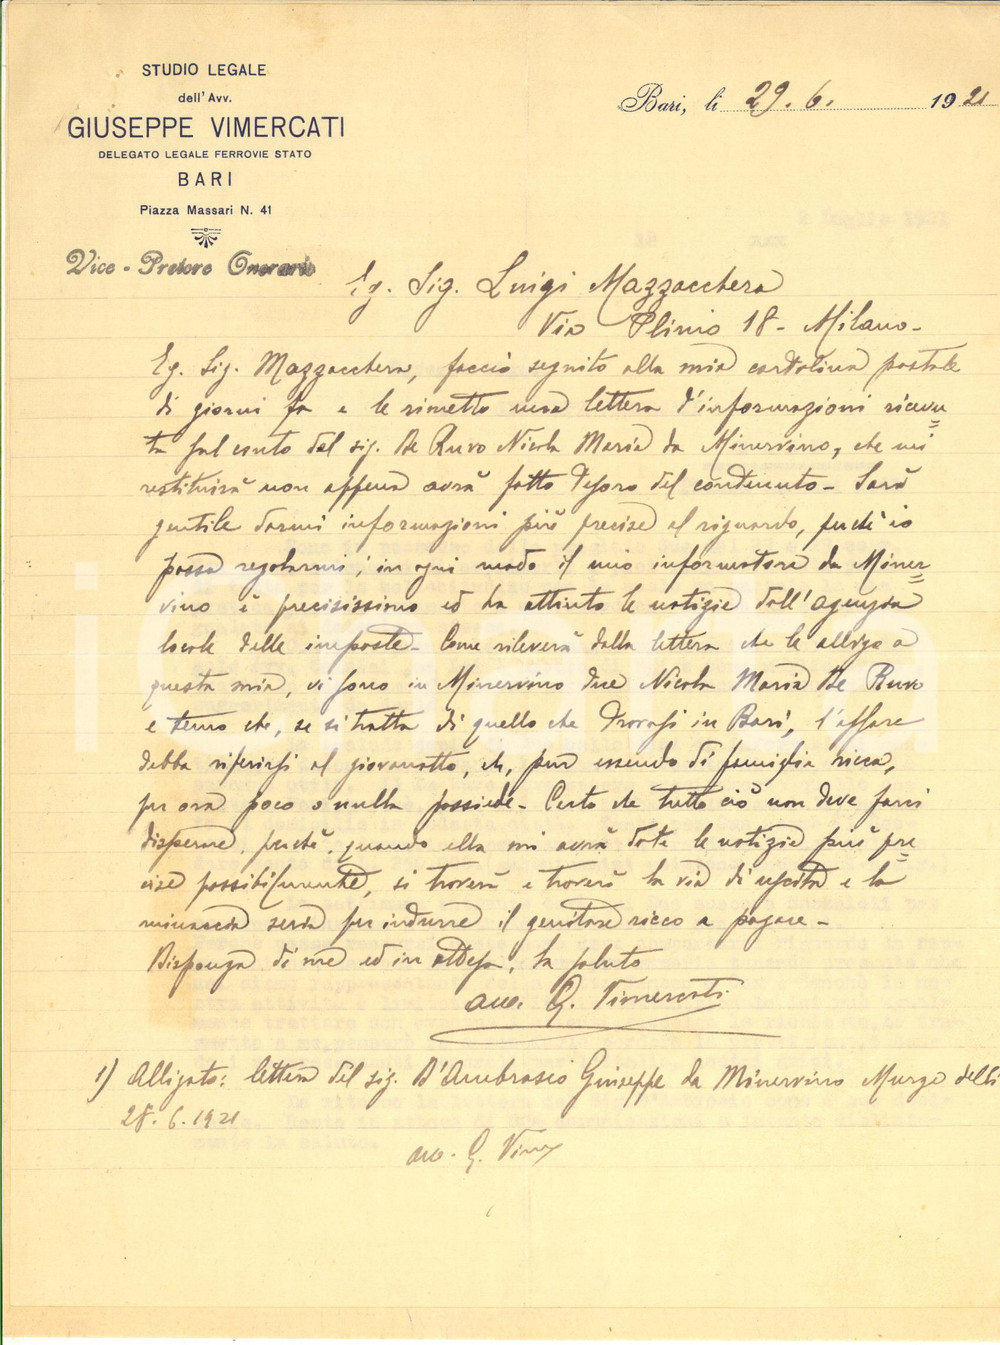 STUDIO LEGALE
dell' Avv.
GIUSEPPE VIMERCATI
DELEGATO LEGALE FERROVIE STATO
BARI
Piazza Massari N. 41
Vice - Pretore Onorario
Bari, li 29. 6. 1921
Eg. Sig. Luigi Mazzucchera
Via Plinio 18 - Milano -
Eg. Sig. Mazzucchera, faccio seguito alla mia cartolina postale
di giorni fa e le rimetto una lettera d'informazioni ricevu=
ta sul conto del sig. De Ruvo Nicola Maria da Minervino, che mi
restituirà non appena avrà fatto tesoro del contenuto - Sarà
gentile darmi informazioni più precise al riguardo, perchè io
possa regolarmi; in ogni modo il mio informatore da Miner=
vino è precisissimo ed ha attinto le notizie dall'agenzia
locale delle imposte - Come rileverà dalla lettera che le allego a
questa mia, vi sono in Minervino due Nicola Maria De Ruvo
e temo che, se si tratta di quello che trovasi in Bari, l'affare
debba riferirsi al giovanotto, che, pur essendo di famiglia ricca,
per ora poco o nulla possiede - Certo che tutto ciò non deve farci
disperare, perchè, quando ella mi avrà date le notizie più pre=
cise possibilmente, si troverà e troverò la via di uscita e la
minaccia seria per indurre il genitore ricco a pagare -
Disponga di me ed in attesa, la saluto
avv. G. Vimercati
1) Alligato: lettera del sig. D'Ambrosio Giuseppe da Minervino Murge delli
28. 6. 1921
avv. G. Vim